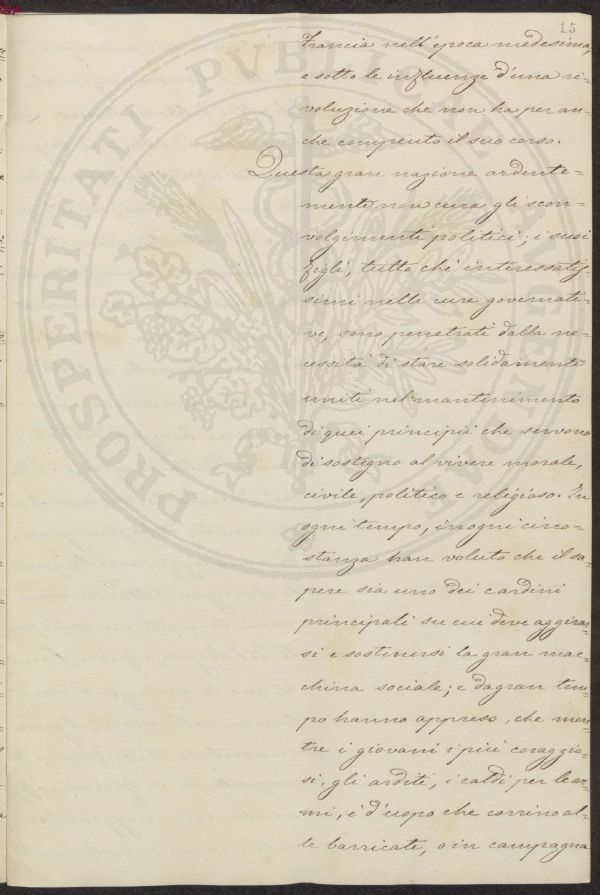 15
Francia nell'epoca medesima,
e sotto le influenze d'una ri-
voluzione che non ha per an-
che compiuto il suo corso.
Questa gran nazione ardente=
mente non cura gli scon-
volgimenti politici; i suoi
figli, tutto chè interessatis-
simi nelle cure governati-
ve, sono penetrati dalla ne-
cessità di stare solidamente
uniti nel mantenimento
di quei principii che servono
di sostegno al vivere morale,
civile, politico e religioso. In
ogni tempo, in ogni circo-
stanza han voluto che il sa-
pere sia uno dei cardini
principali su cui deve aggirar-
si e sostenersi la gran mac-
china sociale; e da gran tem-
po hanno appreso, che men-
tre i giovani i più coraggio-
si, gli arditi, i caldi per le ar-
mi, è d'uopo che corrino al-
le barricate, o in campagna
PROSPERITATI PVBLICAE